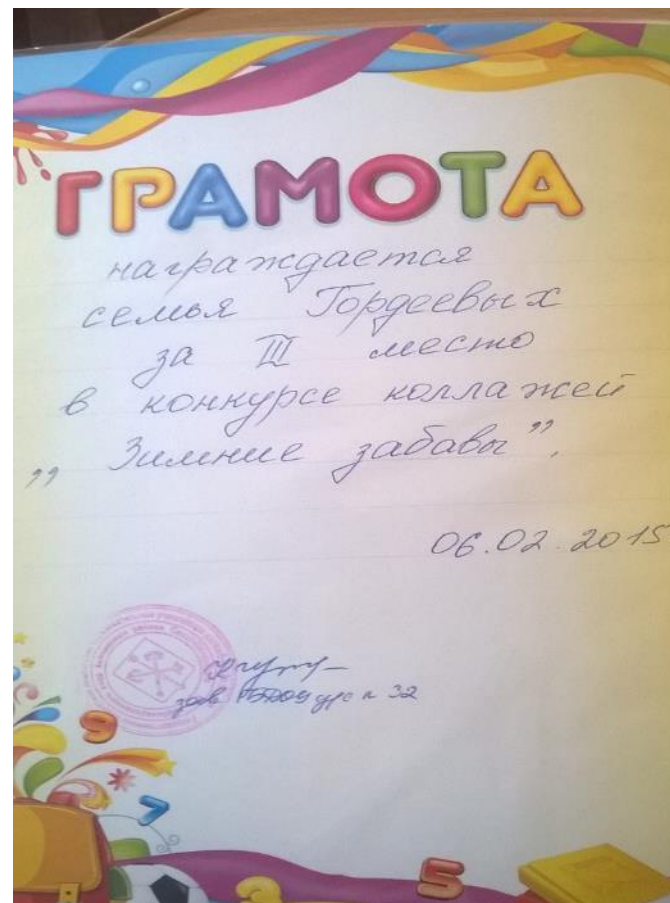 ГРАМОТА
награждается
семья Гордеевых
за III место
в конкурсе коллажей
„ Зимние забавы ”.
06.02.2015
зав ГБДОУ д/с № 32
9
7
3
5